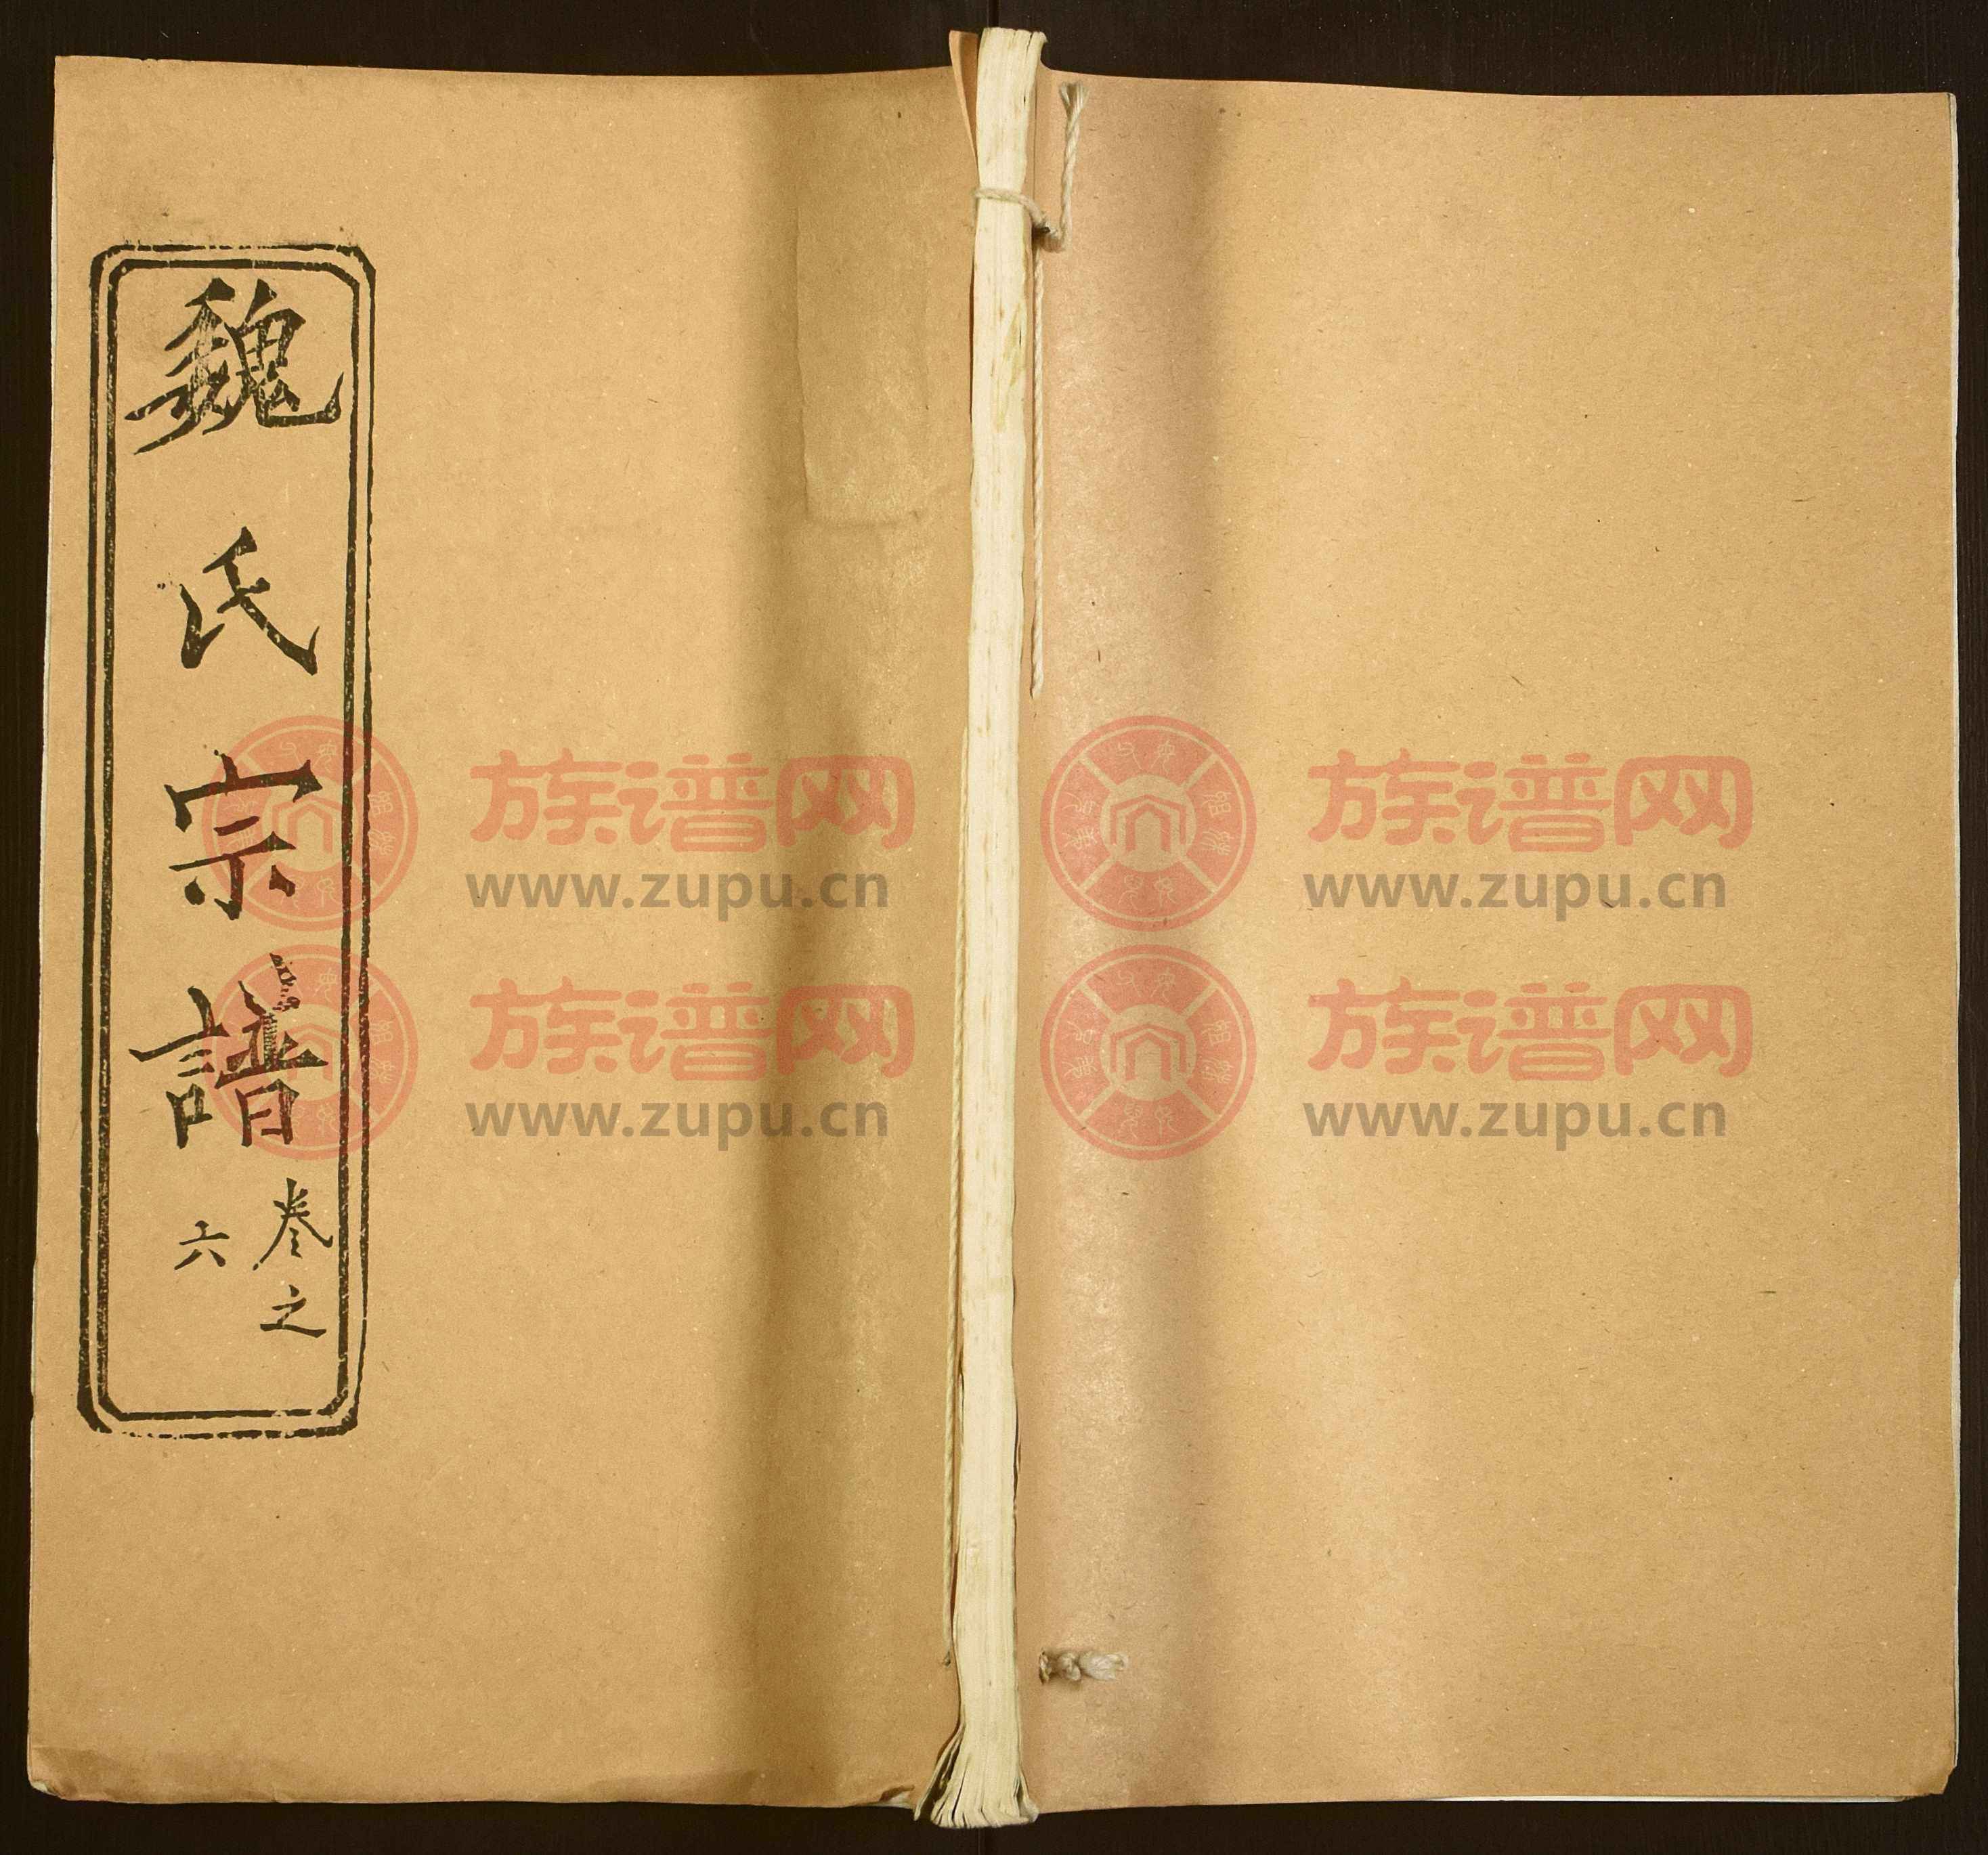 魏氏宗譜
卷之
六
族谱网
www.zupu.cn
族谱网
www.zupu.cn
族谱网
www.zupu.cn
族谱网
www.zupu.cn